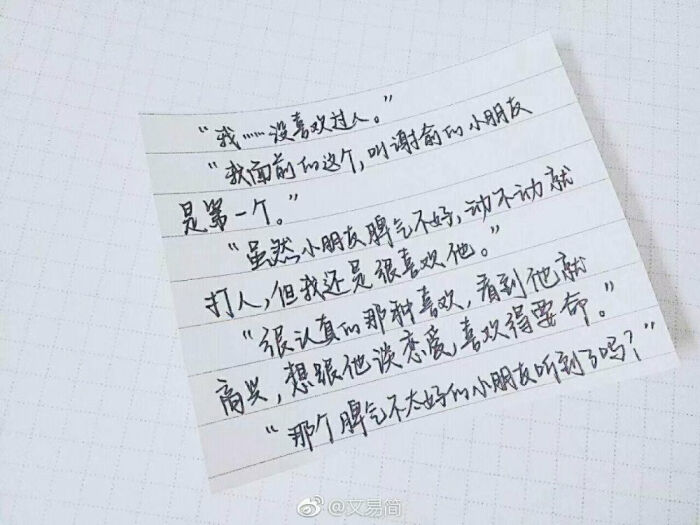 “我……没喜欢过人。”
“我面前的这个，叫谢俞的小朋友
是第一个。”
“虽然小朋友脾气不好，动不动就
打人，但我还是很喜欢他。”
“很认真的那种喜欢，看到他就
高兴，想跟他谈恋爱，喜欢得要命。”
“那个脾气不太好的小朋友听到了吗？”
@文易简